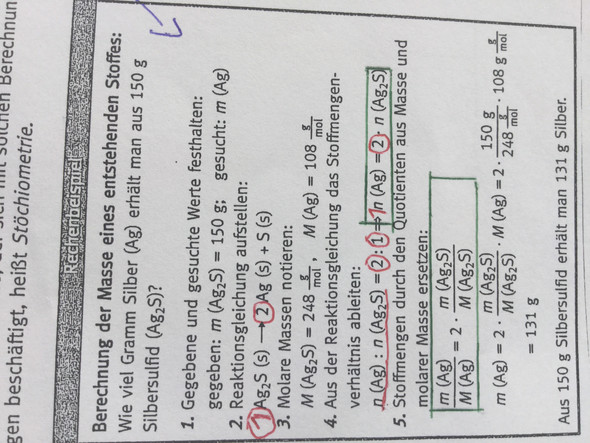 gen beschäftigt, heißt Stöchiometrie.
Rechenbeispiel
Berechnung der Masse eines entstehenden Stoffes:
Wie viel Gramm Silber (Ag) erhält man aus 150 g
Silbersulfid (Ag₂S)?
1. Gegebene und gesuchte Werte festhalten:
gegeben: m (Ag₂S) = 150 g; gesucht: m (Ag)
2. Reaktionsgleichung aufstellen:
1 Ag₂S (s) → 2 Ag (s) + S (s)
3. Molare Massen notieren:
M (Ag₂S) = 248 g/mol, M (Ag) = 108 g/mol
4. Aus der Reaktionsgleichung das Stoffmengen-
verhältnis ableiten:
n (Ag) : n (Ag₂S) = 2 : 1 ⇒ 1 n (Ag) = 2 · n (Ag₂S)
5. Stoffmengen durch den Quotienten aus Masse und
molarer Masse ersetzen:
m (Ag)/M (Ag) = 2 · m (Ag₂S)/M (Ag₂S)
m (Ag) = 2 · m (Ag₂S)/M (Ag₂S) · M (Ag) = 2 · 150 g/248 g/mol · 108 g g/mol
= 131 g
Aus 150 g Silbersulfid erhält man 131 g Silber.